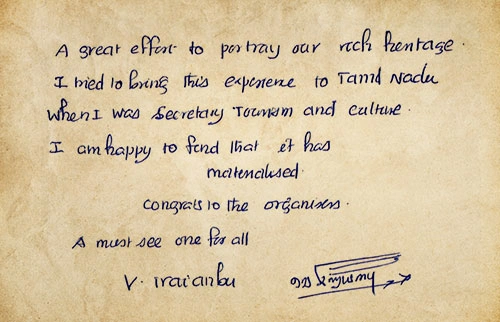 A great effort to portray our rich heritage.
I tried to bring this experience to Tamil Nadu
when I was Secretary Tourism and culture.
I am happy to find that it has
materialised.
congrats to the organisers.
A must see one for all
V. iraianbu